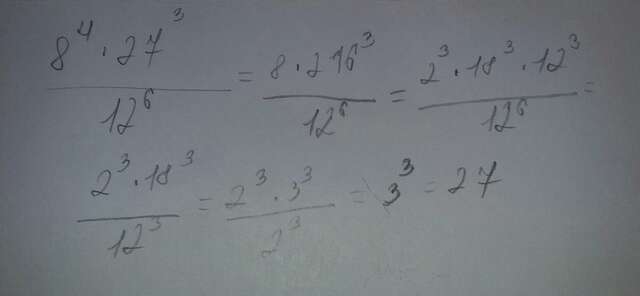 8^4 · 27^3 / 12^6 = 8 · 216^3 / 12^6 = 2^3 · 18^3 · 12^3 / 12^6 =
2^3 · 18^3 / 12^3 = 2^3 · 3^3 / 2^3 = 3^3 = 27